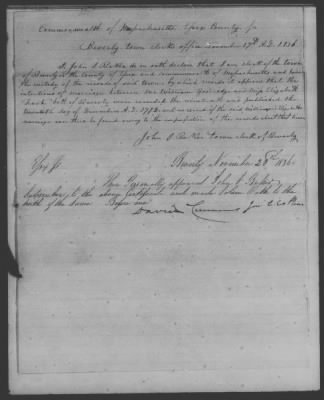 Commonwealth of Massachusetts Essex County, ss
Beverly town clerks office November 17th A.D. 1836
I, John I Baker do on oath declare that I am clerk of the town
of Beverly in the county of Essex and commonwealth of Massachusetts and have
the custody of the records of said town by which records it appears that the
intentions of marriage between Mr William and Miss Elizabeth
both of Beverly were recorded the nineteenth and published the
twentieth day of December A.D. 1772 and no record of the said
marriage can there be found owing to the of the records about that time
John I Baker town clerk of Beverly
Essex ss. Beverly November 28th 1836
Then Personally appeared John I Baker
Subscriber to the above Certificate and made Solemn Oath to the
truth of the Same Before me
David Cummins